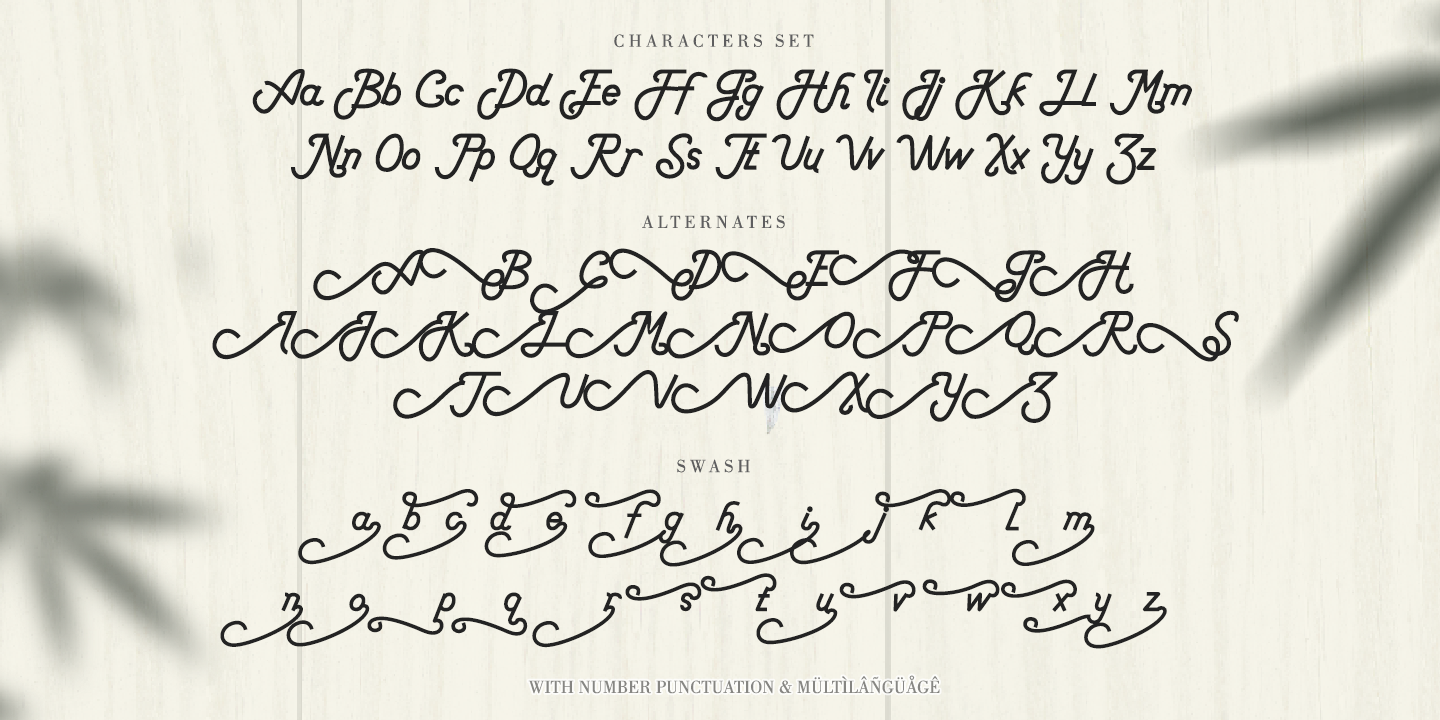 CHARACTERS SET
Aa Bb Cc Dd Ee Ff Gg Hh Ii Jj Kk Ll Mm
Nn Oo Pp Qq Rr Ss Tt Uu Vv Ww Xx Yy Zz
ALTERNATES
A B C D E F G H
I J K L M N O P Q R S
T U V W X Y Z
SWASH
a b c d e f g h i j k l m
n o p q r s t u v w x y z
WITH NUMBER PUNCTUATION & MÜLTÌLÂÑGÜÅGÊ